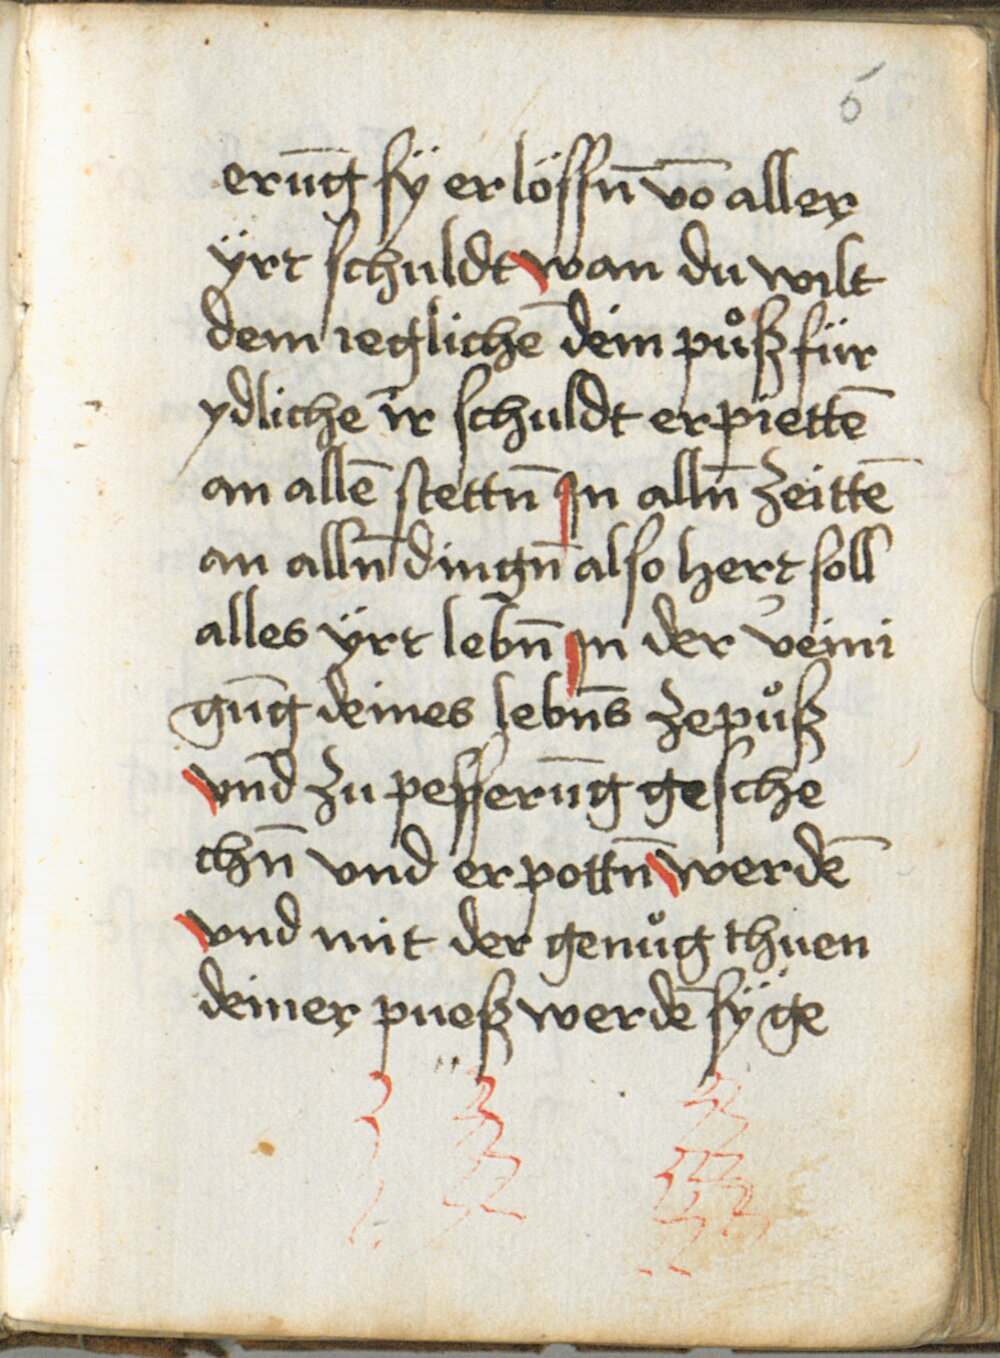 6
erūg sÿ erlössn̄ vō aller
ÿrt schuldt wan du wilt
dem ieglichē dein půß für
ydliche ir schuldt erpiettē
an allē stettn̄ In alln̄ zeittē
an alln̄ dingn̄ also hert soll
alles ÿrt lebn̄ In der veini
gūg deines lebn̄s ze půß
vn̄d zu pesserūg gesche
chn̄ vnd erpottn̄ werdē
vnd mit der genůg thuen
deiner pueß werdē sÿ ge